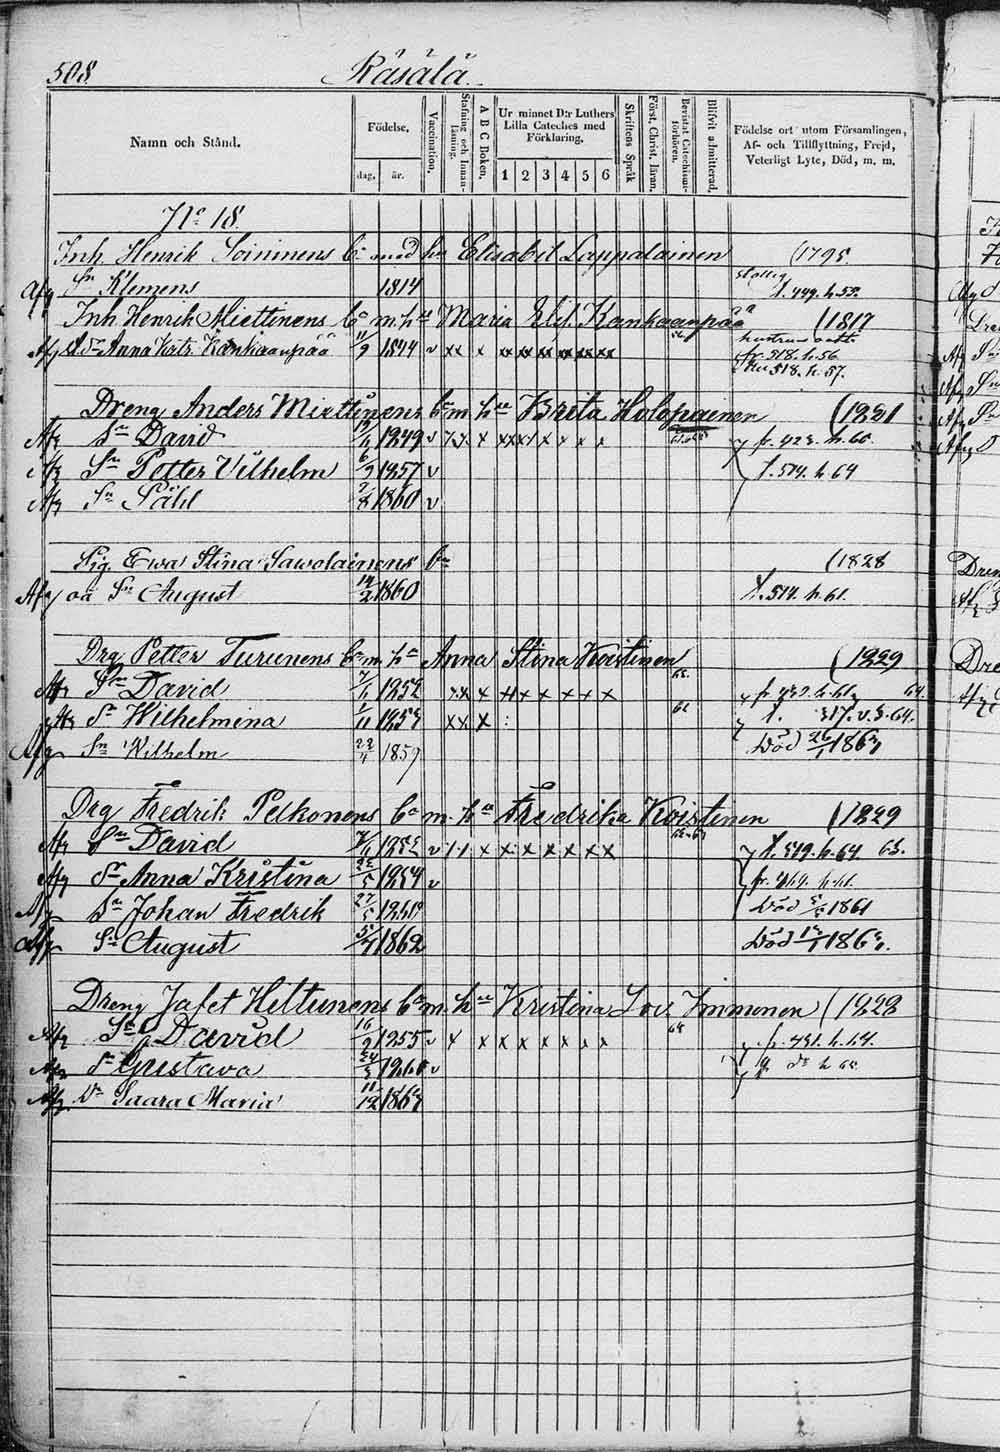 508. Räsälä.
Namn och Stånd.
Födelse,
dag, år.
Vaccination.
Stafning och Innanläsning.
A B C Boken.
Ur minnet D:r Luthers Lilla Cateches med Förklaring.
1 2 3 4 5 6
Skriftens Språk
Först. Christ. läran.
Bevistat Catechismiförhören.
Blifvit admitterad.
Födelse ort utom Församlingen, Af- och Tillflyttning, Frejd, Veterligt Lyte, Död, m. m.
No 18.
Inh. Henrik Soininens bn med hu Elisabet Lappalainen (1795.
Afg Sn Klemens 1814 t. 449. h. 53.
Inh Henrik Miettinens bn m. hu Maria Elis. Kankaanpää (1817
Afg Dr Anna Katr. Kankaanpää 11/9 1844 v xx x xx xx xx xx xx xx fr. 518. h. 56 518. h. 57.
Dreng Anders Miettinens bn m hu Brita Holopainen (1821
Afg Sn David 1849 v xx x x x x x x fr. 423. h. 60
Afg Sn Petter Vilhelm 6/9 1857 v t. 514. h 64
Afg Sn Påhl 2/8 1860 v
Pig. Ewa Stina Sawolainens bn (1828
Afg oä Sn August 14/2 1860 t. 514. h. 61.
Drg Petter Turunens bn m. hu Anna Stina Koistinen (1829
Afg Sn David 1852 xx x x x x x x x
Afg Dr Wilhelmina 1/11 x x x 62 t. 317. v. 3. 64.
Afg Sn Wilhelm 1859 Död
Drg Fredrik Pelkonens bn m. hu Fredrika Koistinen (1829
Afg Sn David 1852 v x x x x x x x t. 519. h. 64
Afg Dr Anna Kristina 1854 v
Afg Sn Johan Fredrik 27/5 Död 1861
Afg Sn August 1862 Död
Dreng Jafet Hiltunens bn m. hu Kristina Lov. Immonen (1828
Afg Sn David 16/9 1855 v x x x x x x x x fr. 431. h. 64.
Afg Dr Gustava 1860 v
Afg Dr Saara Maria 11/12